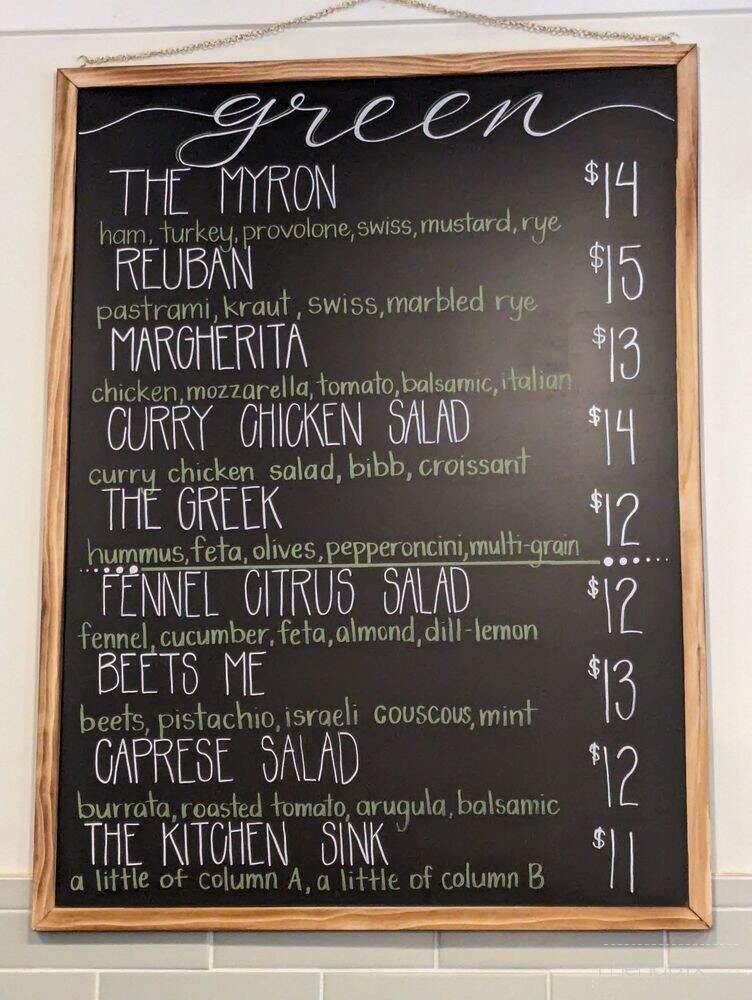 green
THE MYRON $14
ham, turkey, provolone, swiss, mustard, rye
REUBAN $15
pastrami, kraut, swiss, marbled rye
MARGHERITA $13
chicken, mozzarella, tomato, balsamic, italian
CURRY CHICKEN SALAD $14
curry chicken salad, bibb, croissant
THE GREEK $12
hummus, feta, olives, pepperoncini, multi-grain
FENNEL CITRUS SALAD $12
fennel, cucumber, feta, almond, dill-lemon
BEETS ME $13
beets, pistachio, israeli couscous, mint
CAPRESE SALAD $12
burrata, roasted tomato, arugula, balsamic
THE KITCHEN SINK $11
a little of column A, a little of column B